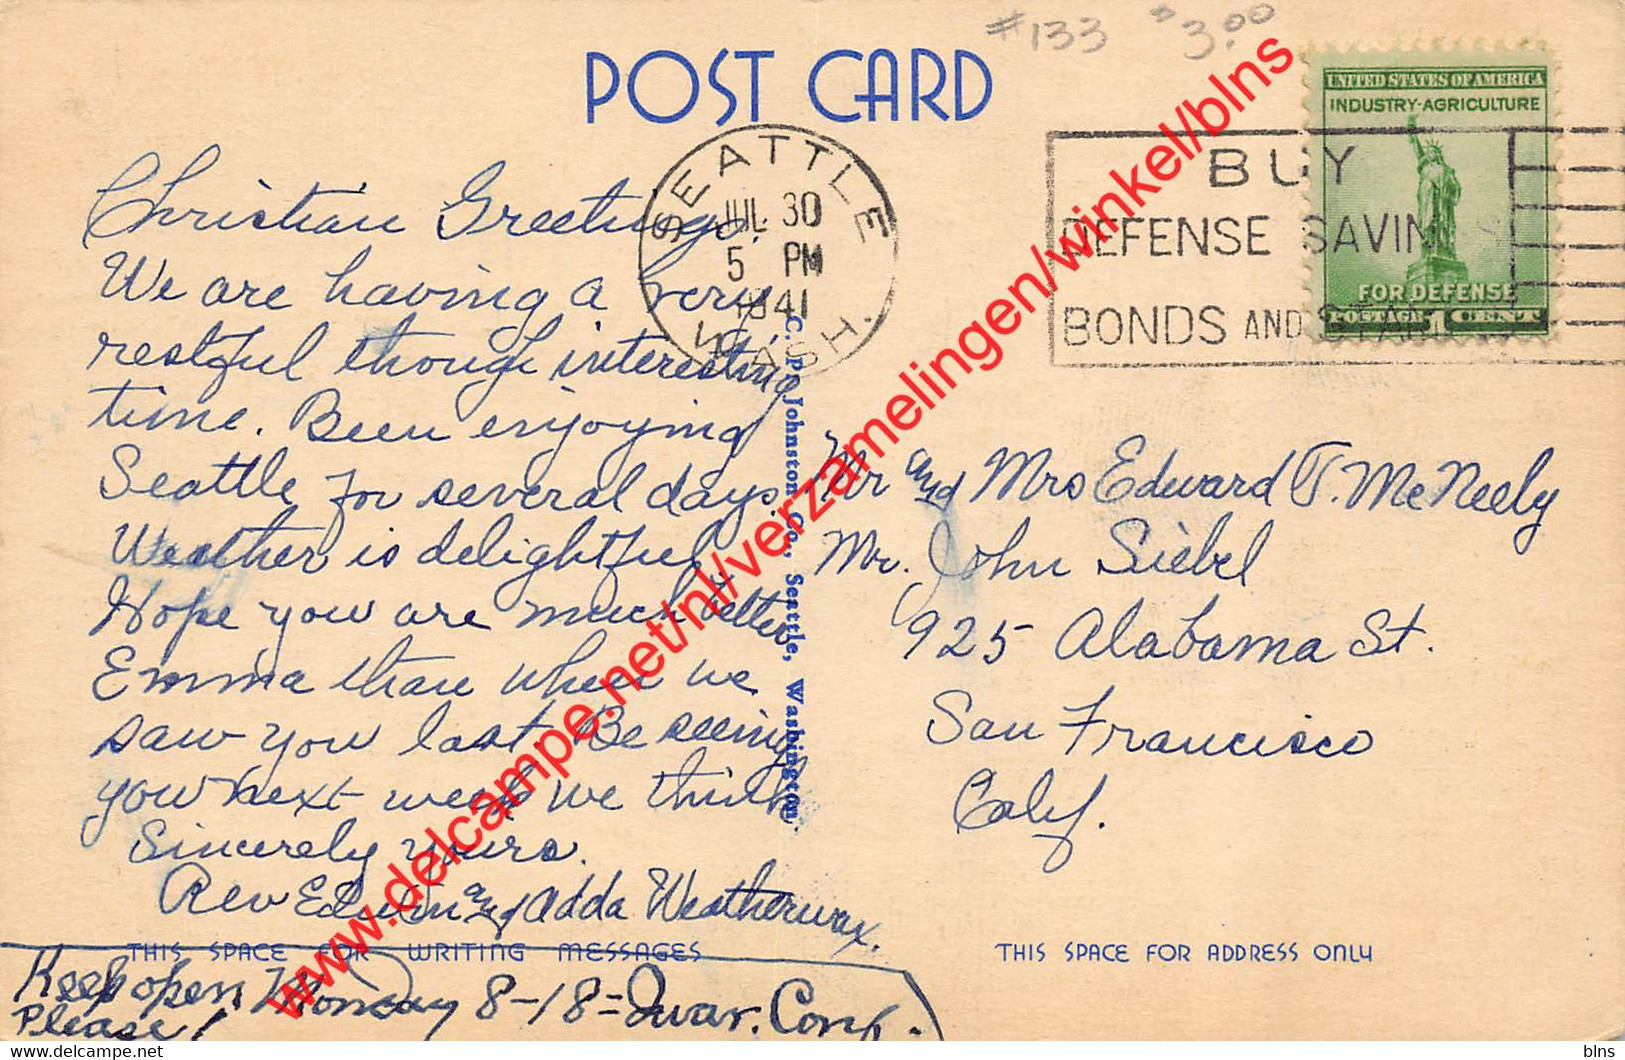 #133 $3.00
POST CARD
UNITED STATES OF AMERICA
INDUSTRY-AGRICULTURE
FOR DEFENSE
POSTAGE 1 CENT
SEATTLE
JUL 30
5 PM
1941
WASH.
BUY
DEFENSE SAVINGS
BONDS AND STAM
Christian Greetings.
We are having a very
restful though interesting
time. Been enjoying
Seattle for several days.
Weather is delightful.
Hope you are much better
Emma than when we
saw you last. Be seeing
you next week we think
Sincerely yours.
Rev Edwin and Adda Weatherwax.
THIS SPACE FOR WRITING MESSAGES
Keep open Monday 8-18=Quar. Conf.
Please!
C. P. Johnston Co., Seattle, Washington
Mr and Mrs Edward T. McNeely
Mr. John Siebel
925 Alabama St.
San Francisco
Calif.
THIS SPACE FOR ADDRESS ONLY
www.delcampe.net/nl/verzamelingen/winkel/blns
blns